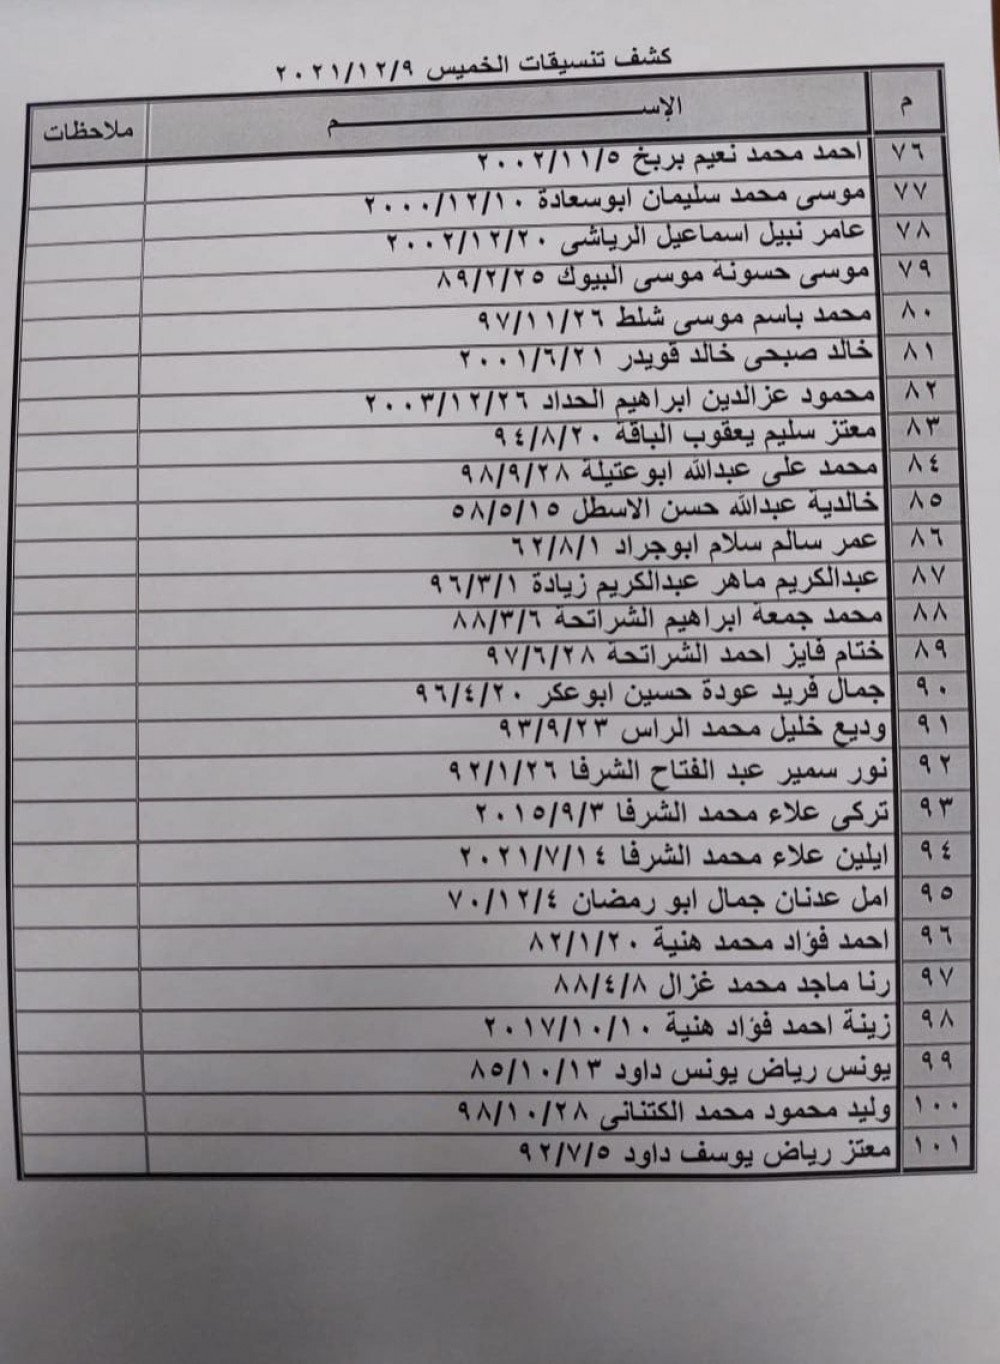 كشف تنسيقات الخميس ٢٠٢١/١٢/٩
م الإســـــم ملاحظات
٧٦ احمد محمد نعيم بربخ ٢٠٠٢/١١/٥
٧٧ موسى محمد سليمان ابوسعادة ٢٠٠٠/١٢/١٠
٧٨ عامر نبيل اسماعيل الرياشى ٢٠٠٢/١٢/٢٠
٧٩ موسى حسونة موسى البيوك ٨٩/٢/٢٥
٨٠ محمد باسم موسى شلط ٩٧/١١/٢٦
٨١ خالد صبحى خالد قويدر ٢٠٠١/٦/٢١
٨٢ محمود عزالدين ابراهيم الحداد ٢٠٠٣/١٢/٢٦
٨٣ معتز سليم يعقوب الباقة ٩٤/٨/٢٠
٨٤ محمد على عبدالله ابوعتيلة ٩٨/٩/٢٨
٨٥ خالدية عبدالله حسن الاسطل ٥٨/٥/١٥
٨٦ عمر سالم سلام ابوجراد ٦٢/٨/١
٨٧ عبدالكريم ماهر عبدالكريم زيادة ٩٦/٣/١
٨٨ محمد جمعة ابراهيم الشراتحة ٨٨/٣/٦
٨٩ ختام فايز احمد الشراتحة ٩٧/٦/٢٨
٩٠ جمال فريد عودة حسين ابوعكر ٩٦/٤/٢٠
٩١ وديع خليل محمد الراس ٩٣/٩/٢٣
٩٢ نور سمير عبد الفتاح الشرفا ٩٢/١/٢٦
٩٣ تركى علاء محمد الشرفا ٢٠١٥/٩/٣
٩٤ ايلين علاء محمد الشرفا ٢٠٢١/٧/١٤
٩٥ امل عدنان جمال ابو رمضان ٧٠/١٢/٤
٩٦ احمد فؤاد محمد هنية ٨٢/١/٢٠
٩٧ رنا ماجد محمد غزال ٨٨/٤/٨
٩٨ زينة احمد فؤاد هنية ٢٠١٧/١٠/١٠
٩٩ يونس رياض يونس داود ٨٥/١٠/١٣
١٠٠ وليد محمود محمد الكتنانى ٩٨/١٠/٢٨
١٠١ معتز رياض يوسف داود ٩٢/٧/٥